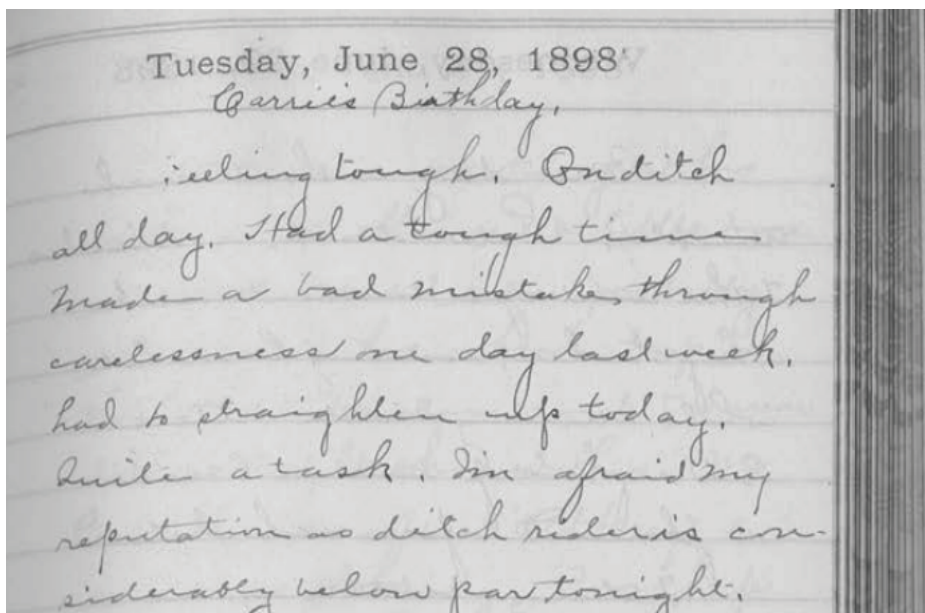 Tuesday, June 28, 1898
Carrie's Birthday.
Feeling tough. On ditch
all day. Had a tough time
made a bad mistake through
carelessness one day last week.
had to straighten up today.
Quite a task. I'm afraid my
reputation as ditch rider is con-
siderably below par tonight.